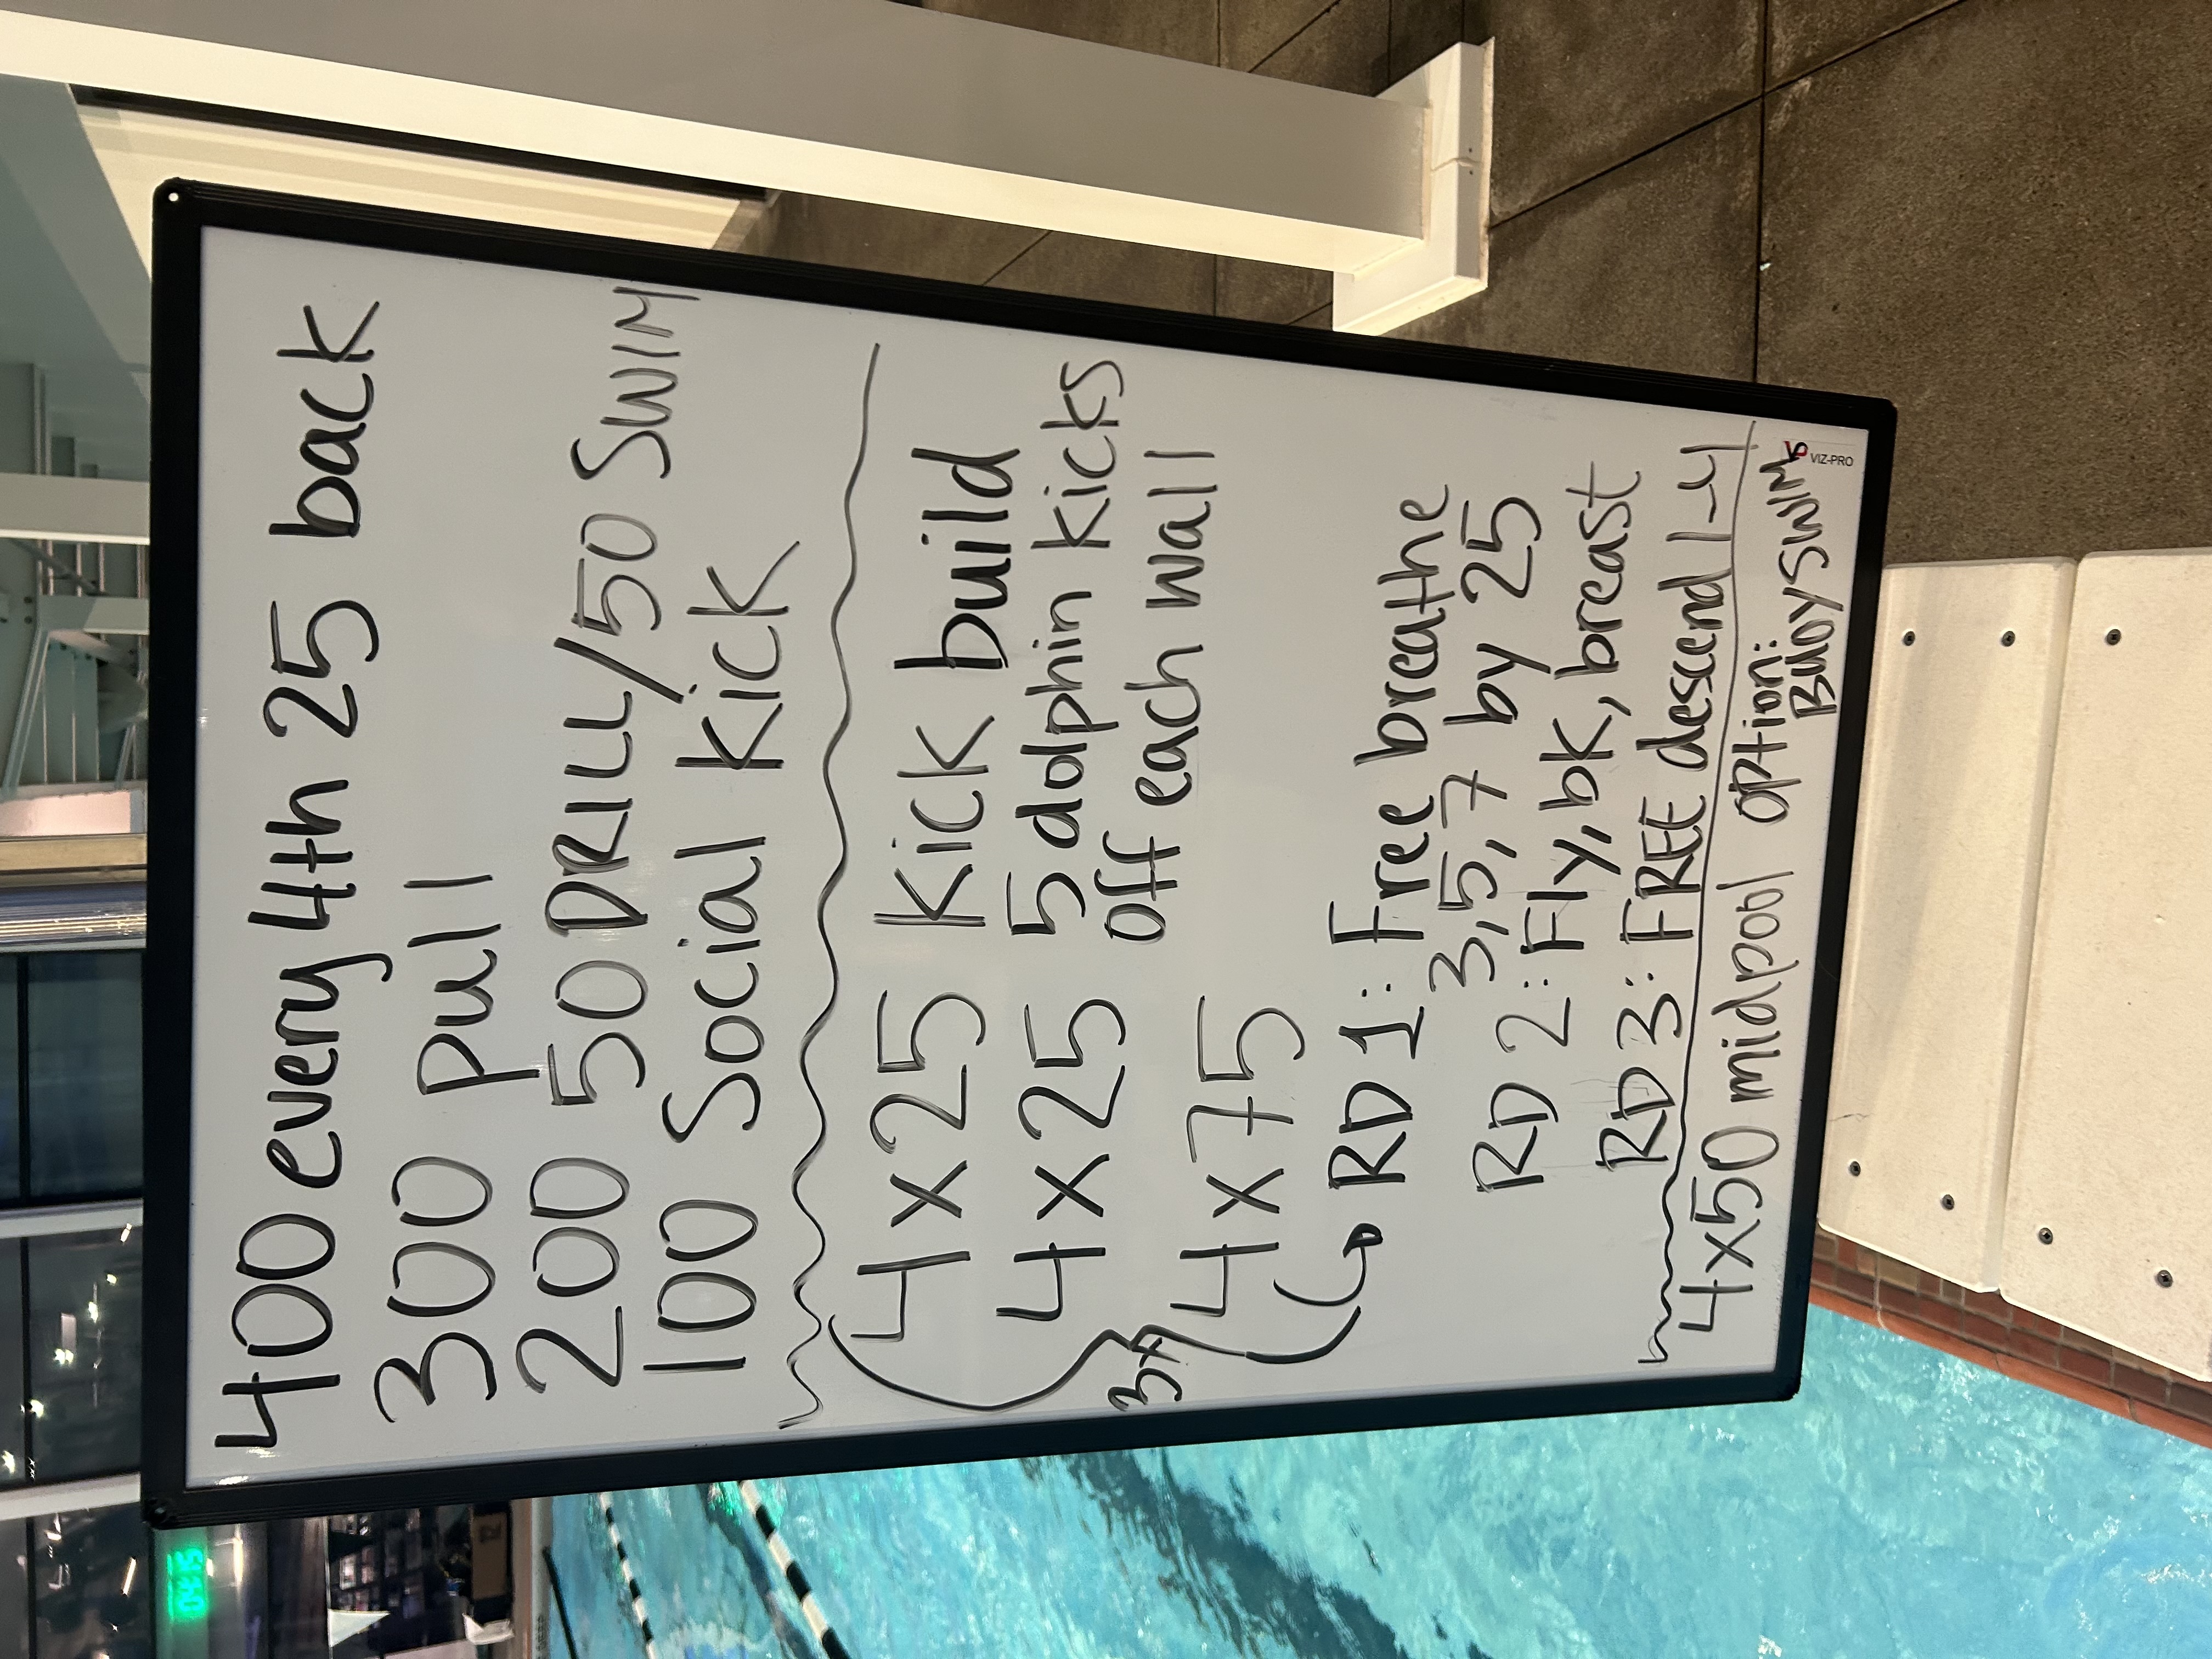 400 every 4th 25 back
300 pull
200 50 DRILL/50 SWIM
100 Social Kick
4x25 Kick build
4x25 5 dolphin kicks
off each wall
3x
4x75
RD 1: Free breathe
3,5,7 by 25
RD 2: Fly, bk, breast
RD 3: FREE descend 1-4
4x50 midpool option:
Buoy swim
VIZ-PRO